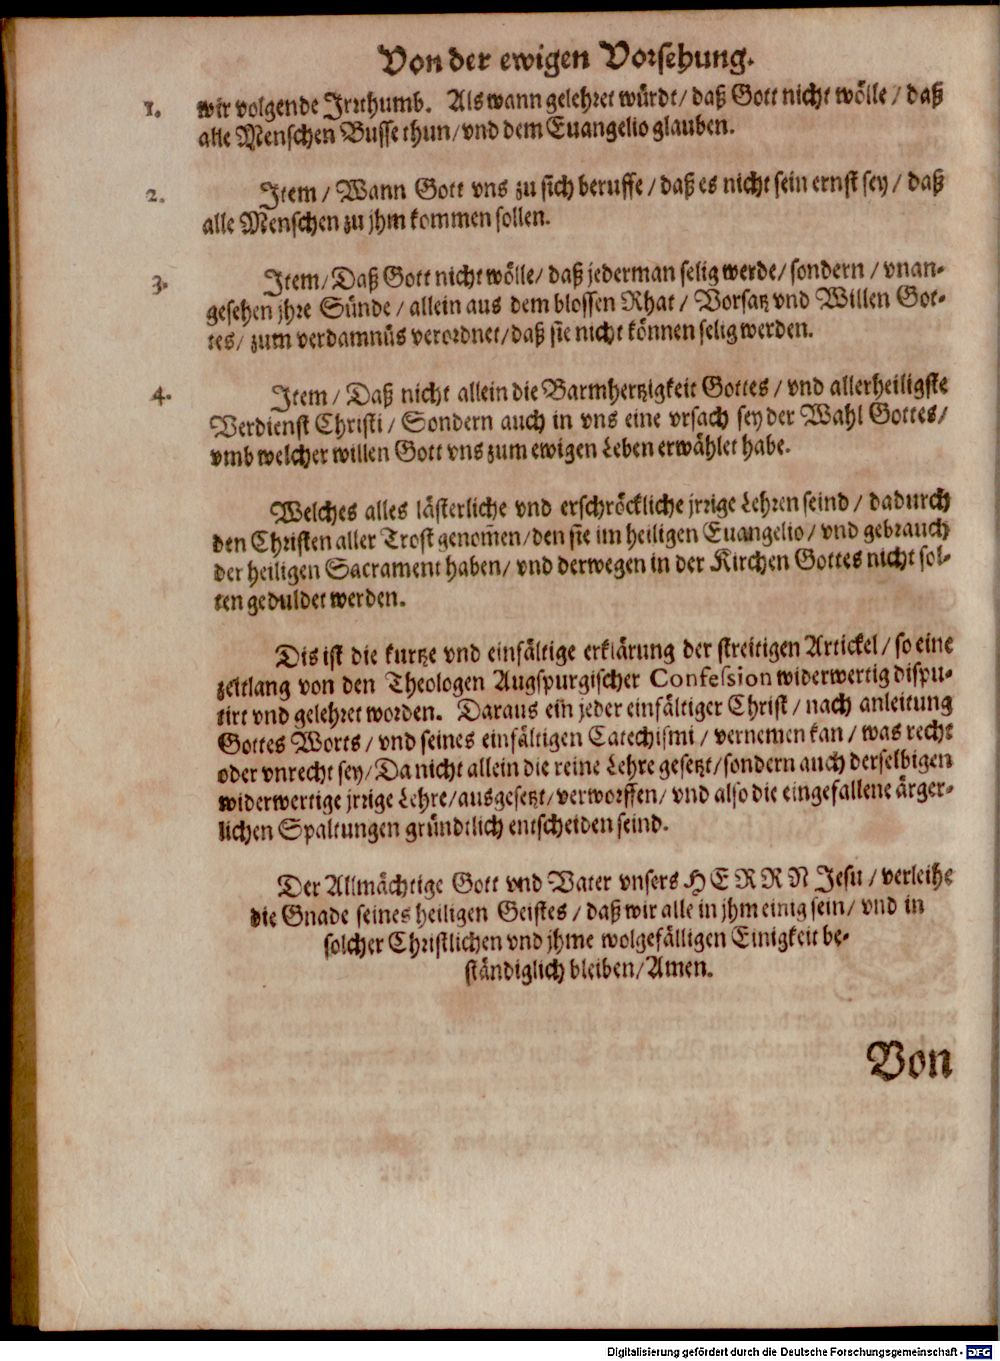 Von der ewigen Vorsehung.
1. wir volgende Irrthumb. Als wann gelehret würdt / daß Gott nicht wölle / daß
alle Menschen Busse thun / vnd dem Euangelio glauben.
2. Item / Wann Gott vns zu sich beruffe / daß es nicht sein ernst sey / daß
alle Menschen zu jhm kommen sollen.
3. Item / Daß Gott nicht wölle / daß jederman selig werde / sondern / vnan-
gesehen jhre Sünde / allein aus dem blossen Rhat / Vorsatz vnd Willen Got-
tes / zum verdamnüs verordnet / daß sie nicht können selig werden.
4. Item / Daß nicht allein die Barmhertzigkeit Gottes / vnd allerheiligste
Verdienst Christi / Sondern auch in vns eine vrsach sey der Wahl Gottes /
vmb welcher willen Gott vns zum ewigen Leben erwählet habe.
Welches alles lästerliche vnd erschröckliche jrrige Lehren seind / dadurch
den Christen aller Trost genom̄en / den sie im heiligen Euangelio / vnd gebrauch
der heiligen Sacrament haben / vnd derwegen in der Kirchen Gottes nicht sol-
ten geduldet werden.
Dis ist die kurtze vnd einfältige erklärung der streitigen Artickel / so eine
zeitlang von den Theologen Augspurgischer Confession widerwertig dispu-
tirt vnd gelehret worden. Daraus ein jeder einfältiger Christ / nach anleitung
Gottes Worts / vnd seines einfältigen Catechismi / vernemen kan / was recht
oder vnrecht sey / Da nicht allein die reine Lehre gesetzt / sondern auch derselbigen
widerwertige jrrige Lehre / ausgesetzt / verworffen / vnd also die eingefallene ärger-
lichen Spaltungen gründtlich entscheiden seind.
Der Allmächtige Gott vnd Vater vnsers HERRN Jesu / verleihe
die Gnade seines heiligen Geistes / daß wir alle in jhm einig sein / vnd in
solcher Christlichen vnd jhme wolgefälligen Einigkeit be-
ständiglich bleiben / Amen.
Von
Digitalisierung gefördert durch die Deutsche Forschungsgemeinschaft - DFG